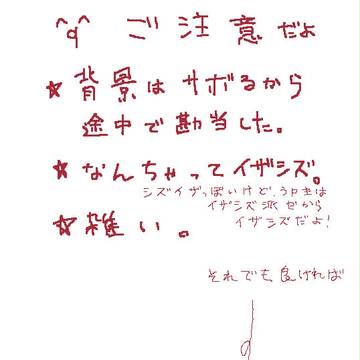 ^q^ ご注意だよ
★背景はサボるから
途中で勘当した。
★なんちゃってイザシズ。
シズイザっぽいけど、うp主は
イザシズ派だから
イザシズだよ！
★雑い。
それでも良ければ